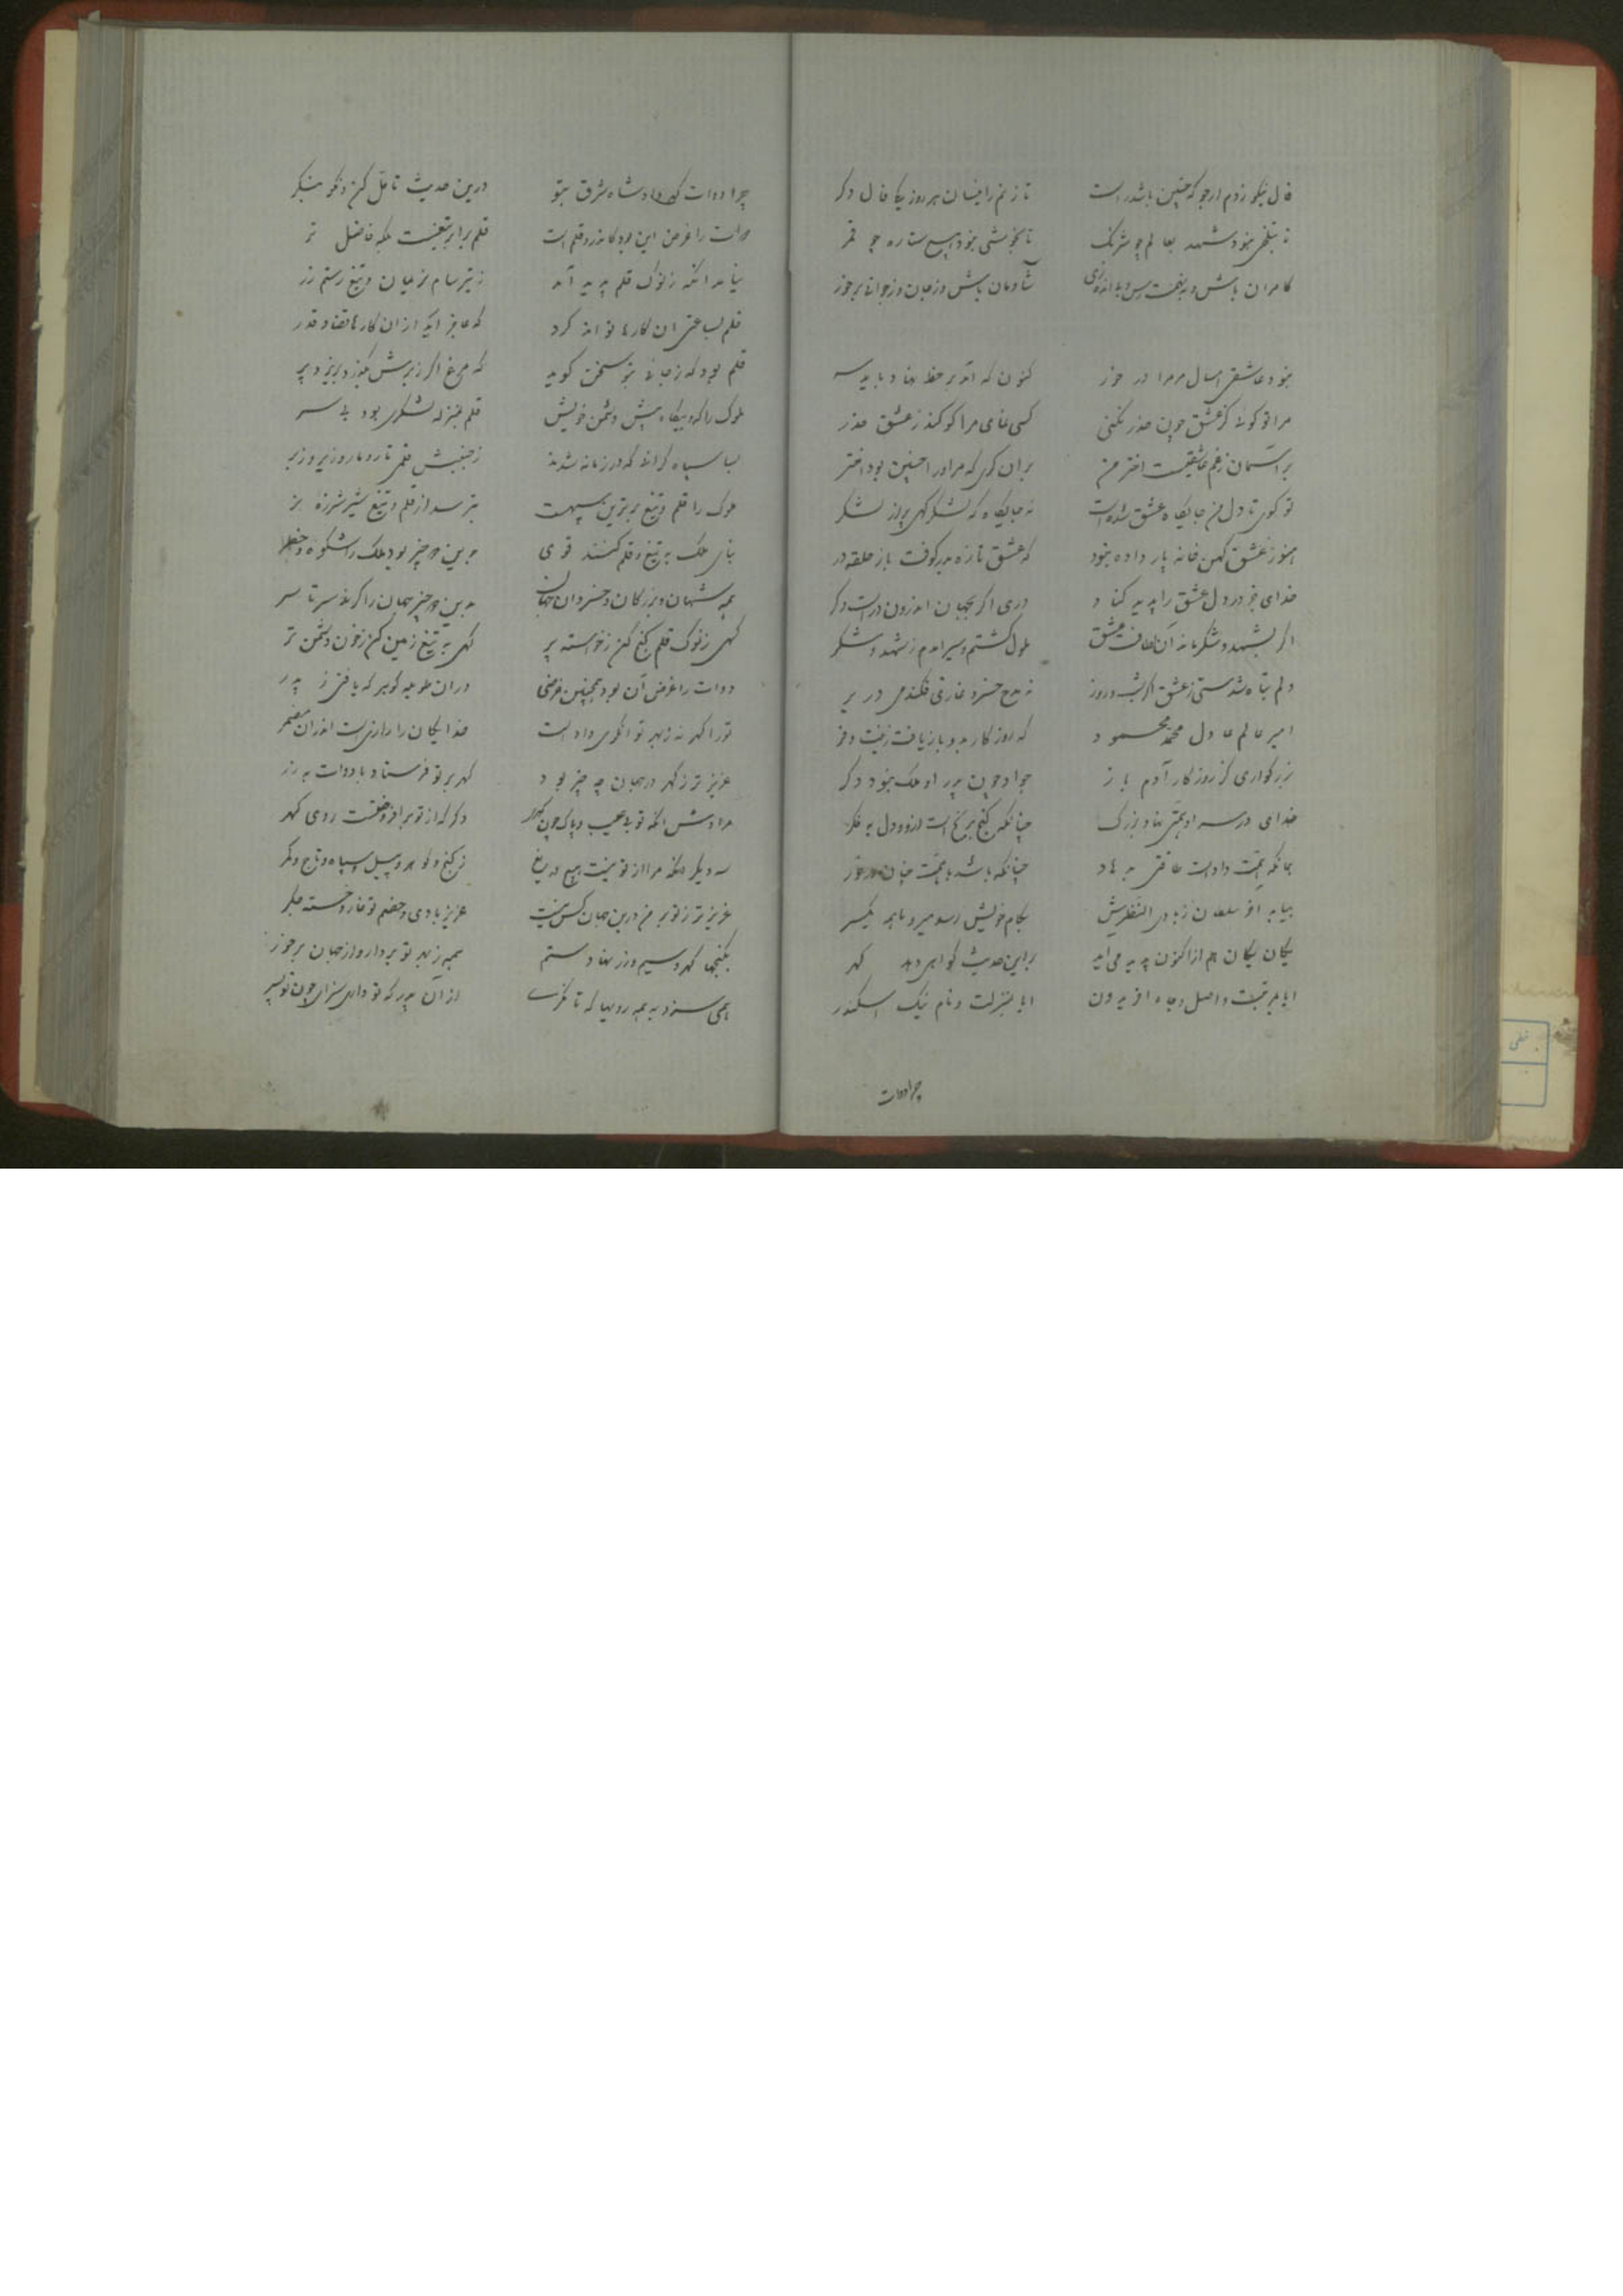 فال نیکو زدم ارجو که چنین باشد راست تا زنم زاینسان هر روز یکی فال دگر
تا بتلخی نبود شهد بعالم چو شرنگ تا بخوشی نبود هیچ ستاره چو قمر
کامران باش و شادمان باش و زجان و زجوانی برخور
نبود عاشقی امسال مر مرا در خور کنون که آمد بر خط نهاد باید سر
مرا تو گوئی کز عشق چون حذر نکنی کسی نماند مرا کو کند ز عشق حذر
بر آسمان ز غم عاشقیست اختر من بر آن کسی که مر او را چنین بود اختر
تو گوئی تا دل من جایگاه عشق شده است نه جایگاه که لشکرگهی پر از لشکر
هنوز عشق کهن خانه باز داده نبود که عشق تازه بدر کوفت باز حلقه در
خدای در دل عشق را پدید کناد دری اگر بجهان اندرون دریست دگر
اگر بشهد و شکر ماند آن لطافت عشق ملول گشتم و سیر آمدم ز شهد و شکر
دلم تباه شدستی ز عشق اگر شب و روز نه مدح خسرو غازی فکندمی در بر
امیر عالم عادل محمد محمود که روزگار بدو باز یافت زینت و فر
بزرگواری کز روزگار آدم باز جواد چون پدر او ملک نبود دگر
خدای در سر او همتی نهاد بزرگ چنانکه گنج برنج است ازو و دل به فکر
چنانکه همت دادست چنانکه باشد با همت چنان درخور
بکام خویش رسد میر و ما همه یکسر
یکان یکان هم از اکنون پدید می آید بر این حدیث گواهی دهد گهر
ایا بمرتبت و اصل و جاه افریدون ایا بمنزلت و نام نیک اسکندر
چرا دوات
چرا دوات گهر داد شاه شرق بتو درین حدیث تامل کن و نکو بنگر
دوات را غرض این بود کاندرو قلم است قلم برابر تیغیست بلکه فاضل تر
نیاید آنکه ز نوک قلم پدید آید ز تیر سام نریمان و تیغ رستم زر
قلم بساعتی آن کارها تواند کرد که عاجز آید از آن کارها قضا و قدر
قلم بود که ز جائی بتو سخن گوید که مرغ اگر ز برش بگذرد بریزد پر
ملوک را گه و بیگاه پیش دشمن خویش قلم بمنزله لشکری بود بی سر
بسا سپاه گران که در زمانه شدند ز جنبش قلمی تار و مار و زیر و زبر
ملوک را قلم و تیغ برترین سپهست بترسد از قلم و تیغ شیر شرزه نر
بنای ملک به تیغ و قلم کنند قوی بدین دو چیز بود ملک را شکوه و خطر
همه شهان و بزرگان و خسروان جهان بدین دو چیز جهان را گرفته سر تا سر
گهی ز نوک قلم گنج کن ز خواسته پر گهی به تیغ زمین کن ز خون دشمن تر
دوات را غرض آن بود همچنین غرضی در آن طویله گوهر که یافتی ز پدر
تو را گهر نه ز بهر توانگری داد است خدایگان را رازیست اندر آن مضمر
عزیزتر ز گهر در جهان چه چیز بود گهر بر تو فرستاد با دوات به زر
مرادش آنکه تو بی عیب و پاک چون گهری دگر که از تو برافروختست روی گهر
سه دیگر آنکه مرا از تو نیست هیچ دریغ ز گنج و گوهر و پیل و سپاه و تاج و کمر
عزیزتر ز تو بر من درین جهان کس نیست عزیز بادی و خصم تو خوار و خسته جگر
بگنجها گهر و سیم و زر نهادستم همه ز بهر تو بردار و از جهان برخور
همی سزد به همه رویها که تا از آن پدر که تو داری سزای چون تو پسر